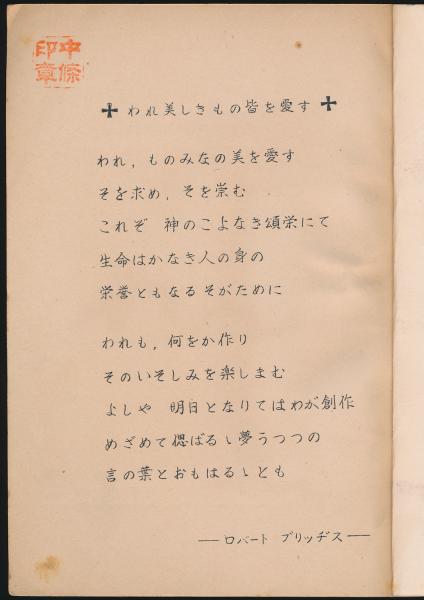 中條
印章
✚ われ美しきもの皆を愛す ✚
われ，ものみなの美を愛す
そを求め，そを崇む
これぞ　神のこよなき頌栄にて
生命はかなき人の身の
栄誉ともなるそがために
われも，何をか作り
そのいそしみを楽しまむ
よしや　明日となりてはわが創作
めざめて偲ばるゝ夢うつつの
言の葉とおもはるゝとも
―ロバート　ブリッヂス―